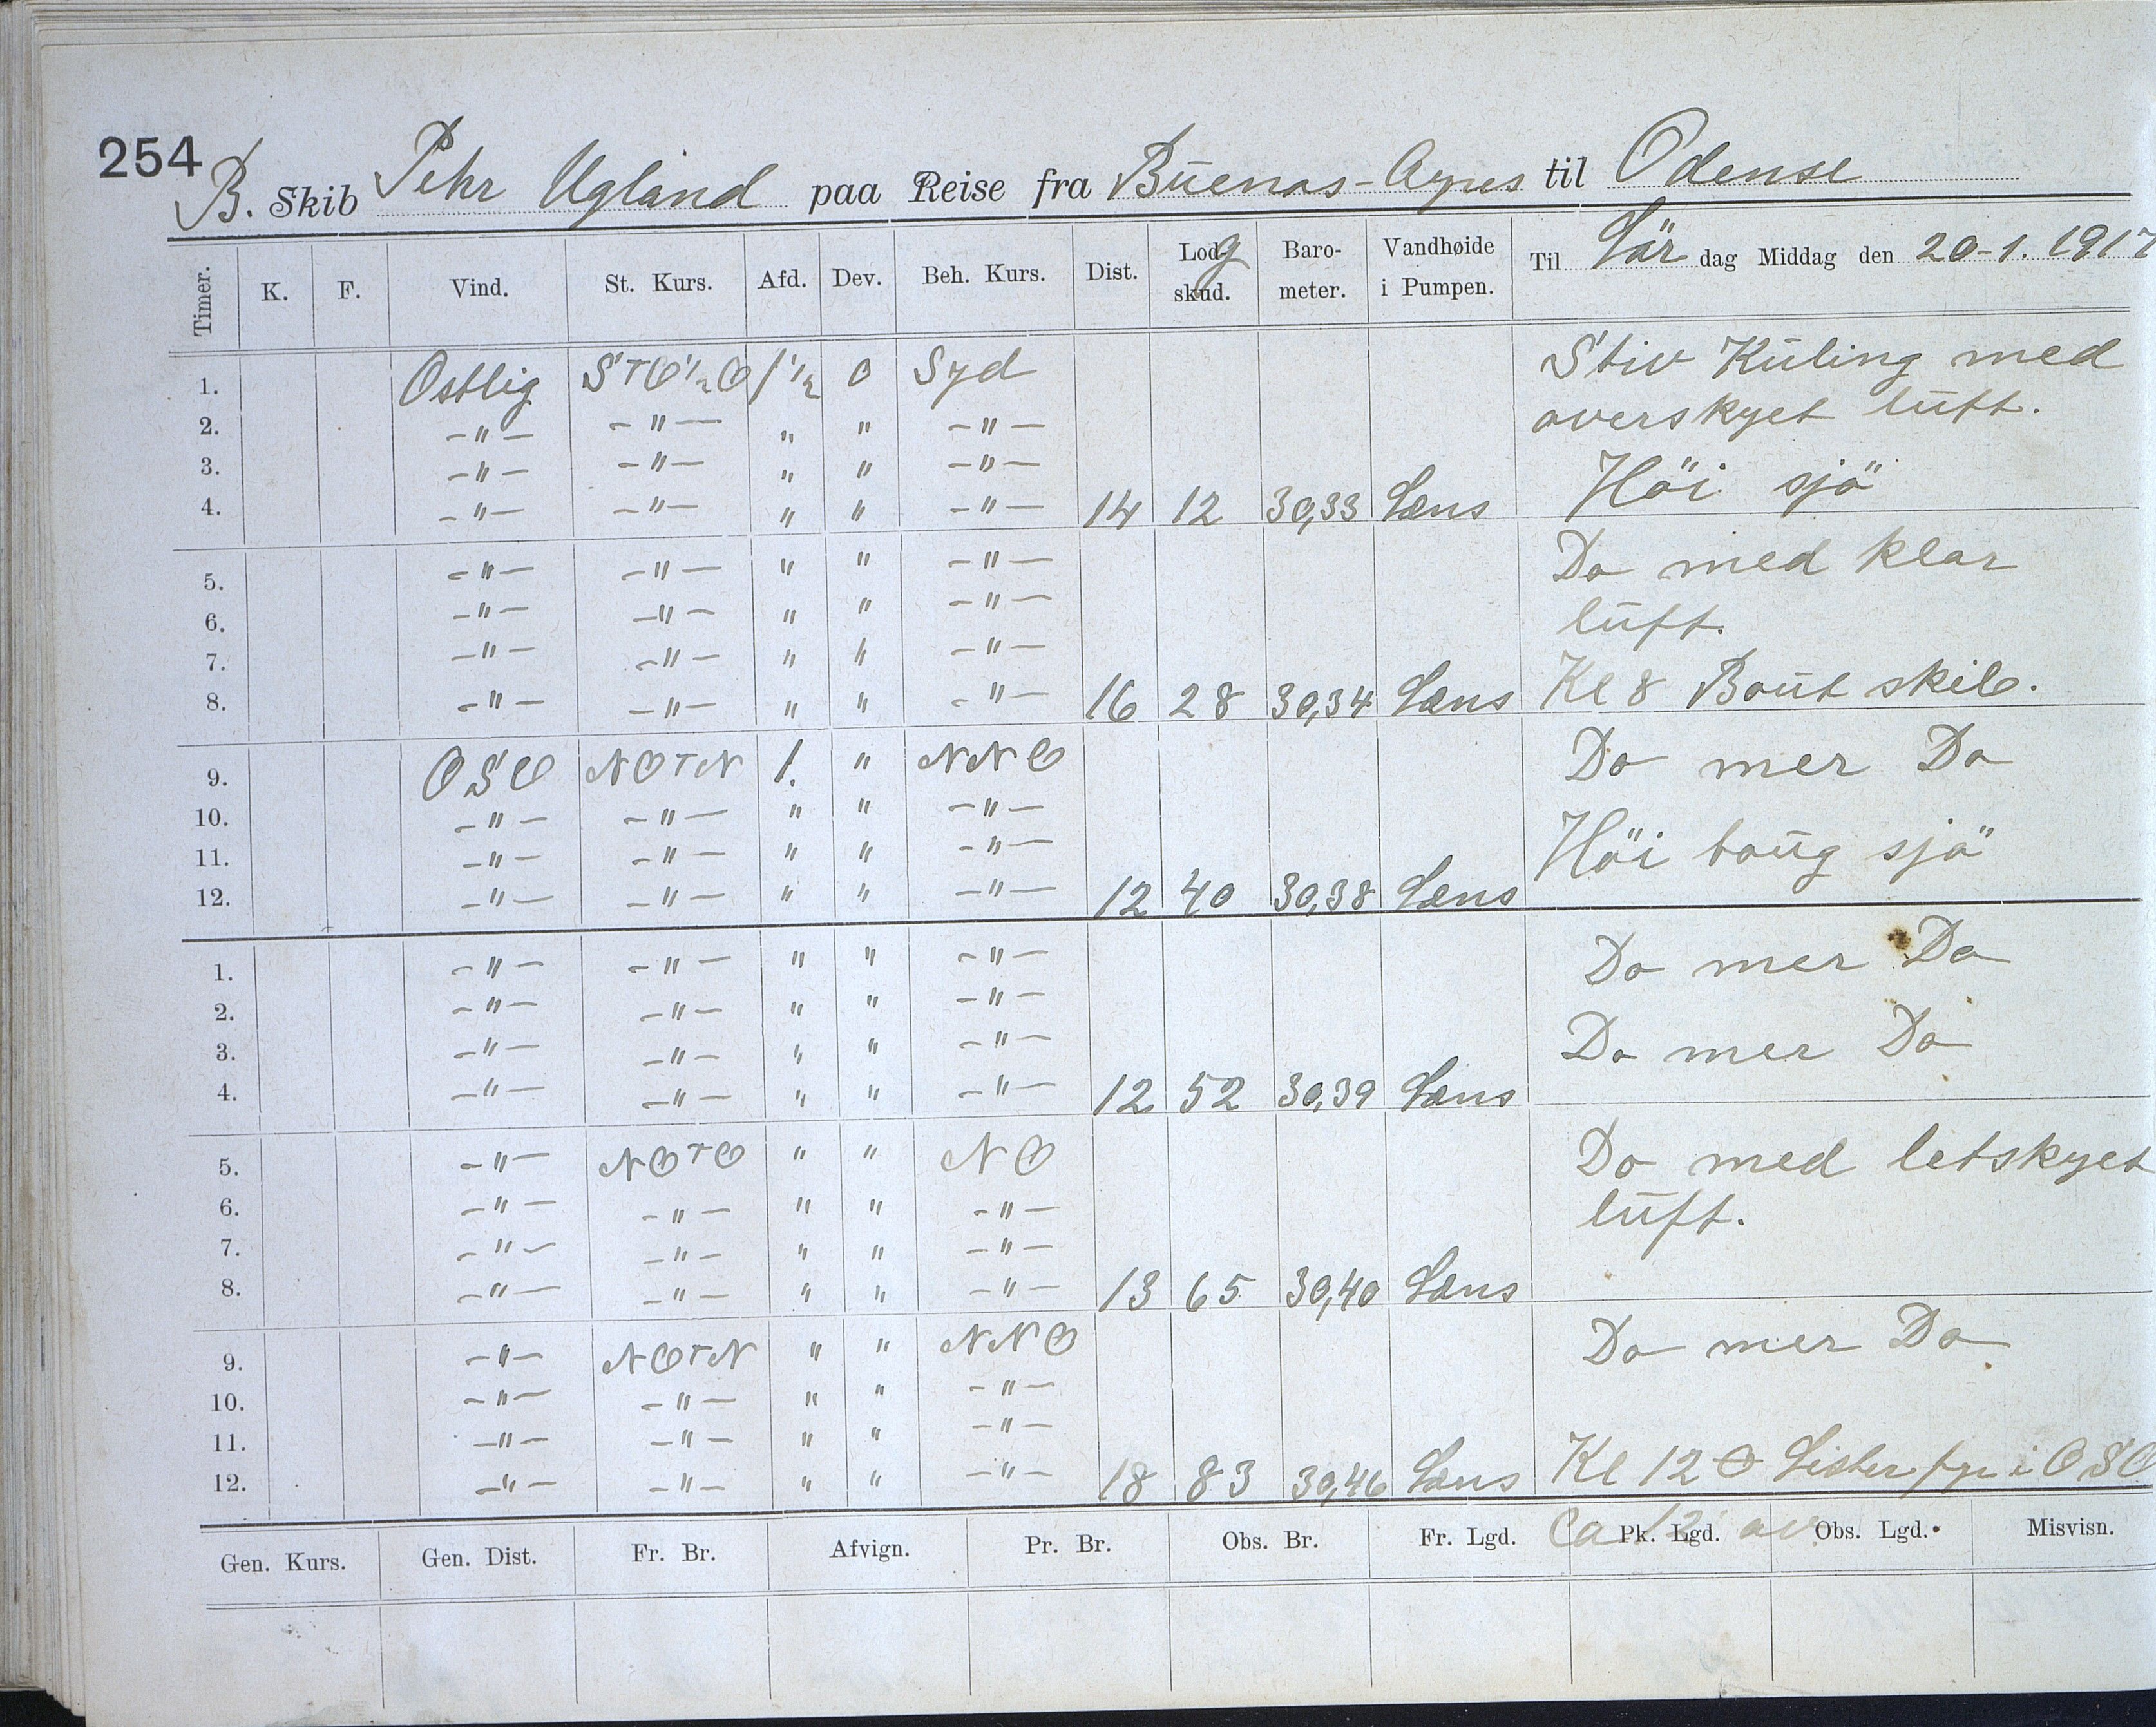 254
B. Skib Pehr Ugland paa Reise fra Buenas-Ayres til Odense
Timer. K. F. Vind. St. Kurs. Afd. Dev. Beh. Kurs. Dist. Lodg skud. Baro- meter. Vandhøide i Pumpen. Til Lör dag Middag den 20-1. 1917
1. Ostlig STO½O 1½ 0 Syd Stiv Kuling med
2. -"- -"- " " -"- overskyet luft.
3. -"- -"- " " -"- Höi sjö
4. -"- -"- " " -"- 14 12 30,33 Læns
5. -"- -"- " " -"- Do med klar
6. -"- -"- " " -"- luft.
7. -"- -"- " " -"-
8. -"- -"- " " -"- 16 28 30,34 Læns Kl 8 Bout skib.
9. OSO NOTN 1. " NNO Do mer Do
10. -"- -"- " " -"-
11. -"- -"- " " -"- Höi baug sjö
12. -"- -"- " " -"- 12 40 30,38 Læns
1. -"- -"- " " -"- Do mer Do
2. -"- -"- " " -"-
3. -"- -"- " " -"- Do mer Do
4. -"- -"- " " -"- 12 52 30,39 Læns
5. -"- NOTO " " NO Do med letskyet
6. -"- -"- " " -"- luft.
7. -"- -"- " " -"-
8. -"- -"- " " -"- 13 65 30,40 Læns
9. -"- NOTN " " NNO Do mer Do
10. -"- -"- " " -"-
11. -"- -"- " " -"-
12. -"- -"- " " -"- 18 83 30,46 Læns Kl 12 Lister fyr i OSO
Ca 12' av.
Gen. Kurs. Gen. Dist. Fr. Br. Afvign. Pr. Br. Obs. Br. Fr. Lgd. Pk. Lgd. Obs. Lgd. Misvisn.